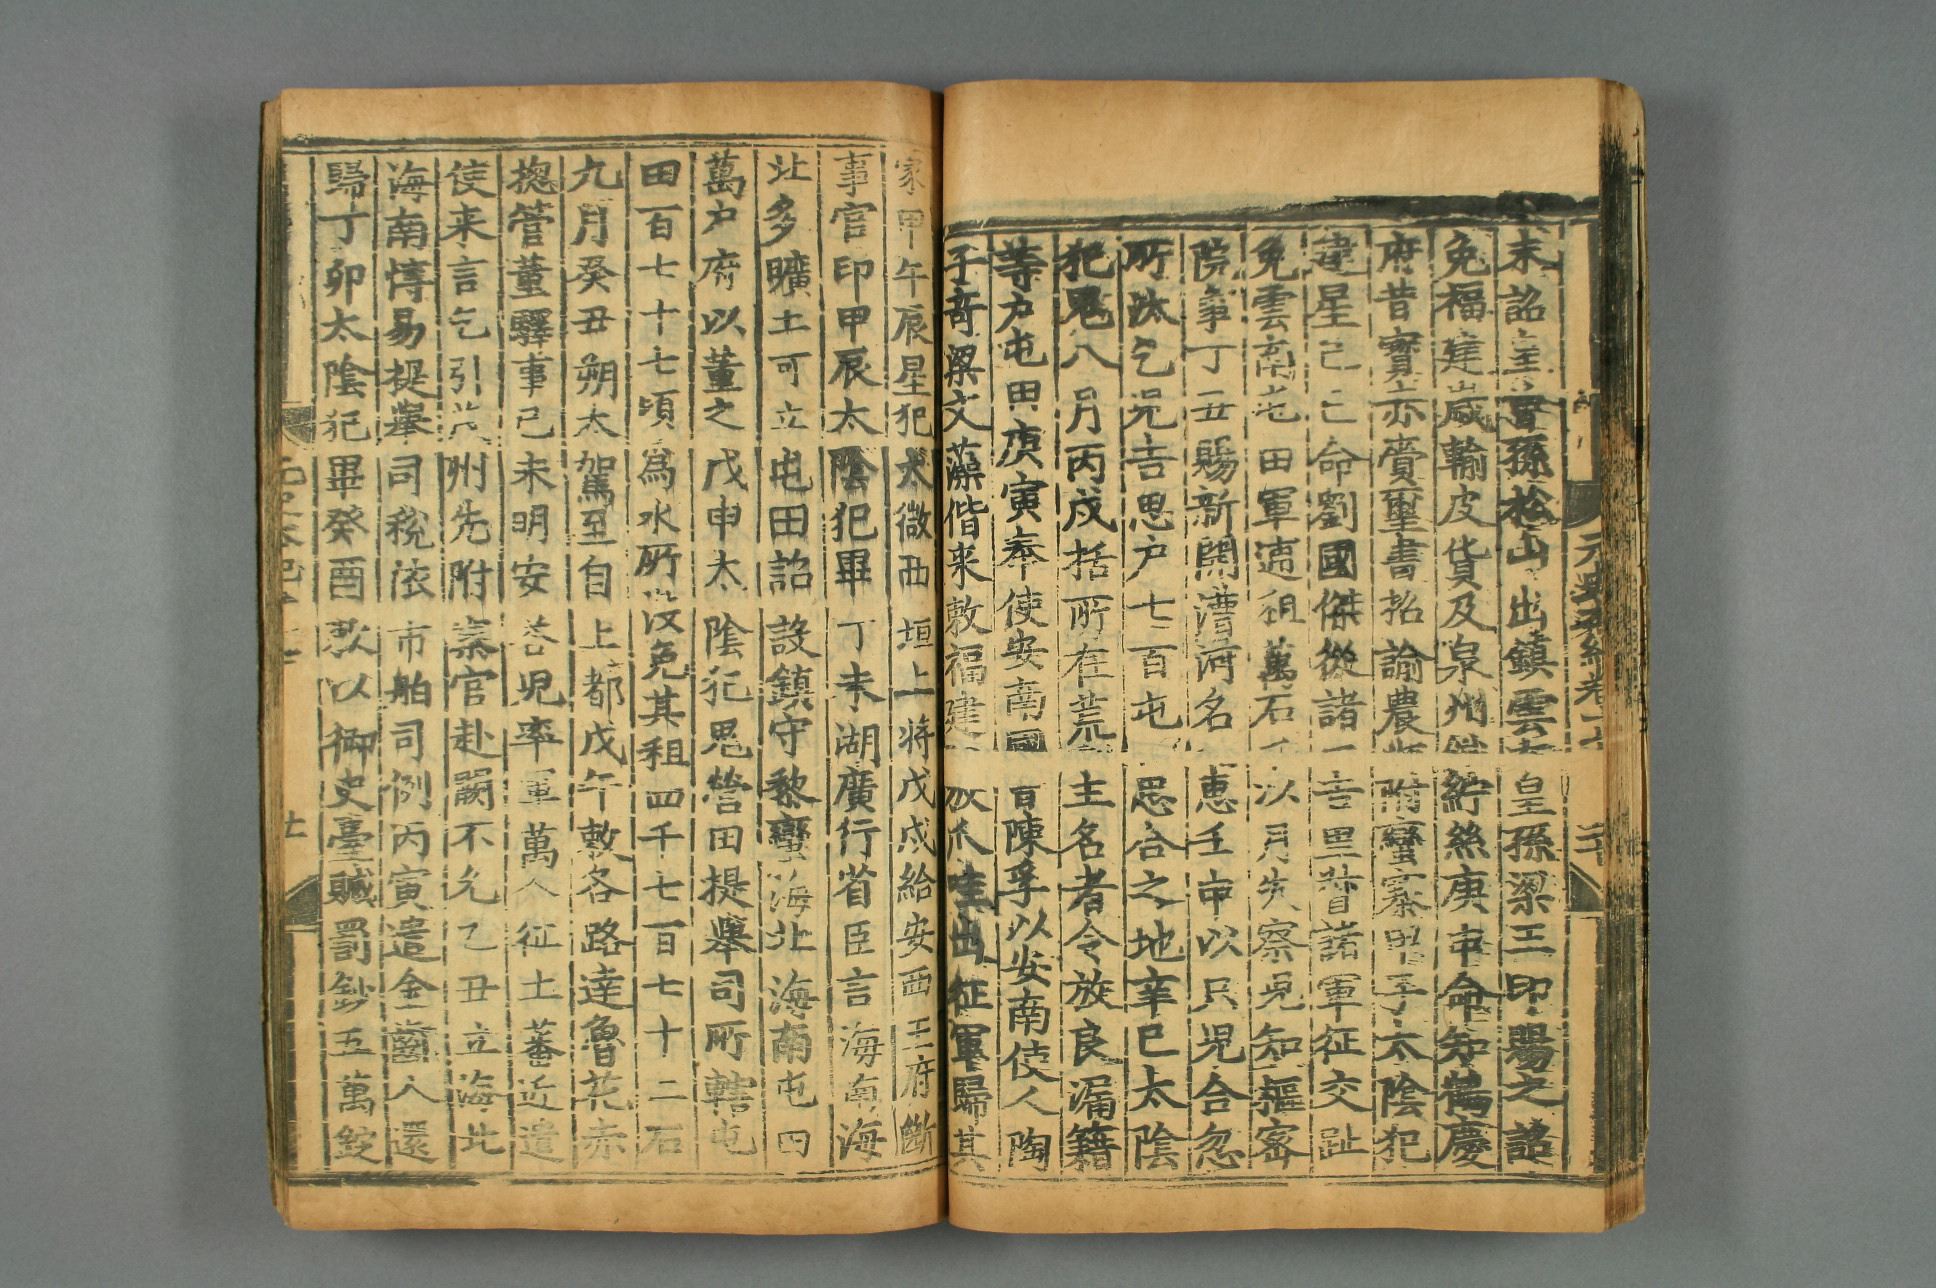 元史本紀卷十七
未詔皇曾孫松山出鎮雲南皇孫梁王印賜之詔
免福建歲輸皮貨及泉州織紵絲庚申命知鶴慶
府昔寶赤齎璽書招諭農順附蠻寨甲子太陰犯
建星己巳命劉國傑從諸王亦吉里督諸軍征交趾
免雲南屯田軍逋租萬石 以月失察兒知樞密
院事丁丑賜新開漕河名 惠壬申以只兒合忽
所汰乞兒吉思戶七百屯 思合之地辛巳太陰
犯鬼八月丙戌括所在荒 主名者令放良漏籍
等戶屯田庚寅奉使安南國 陳孚以安南使人陶
子奇梁文藻偕來敕福建 放爪哇出征軍歸其
家甲午辰星犯太微西垣上將戊戌給安西王府斷
事官印甲辰太陰犯畢丁未湖廣行省臣言海南海
北多曠土可立屯田詔設鎮守黎蠻海北海南屯田
萬戶府以董之戊申太陰犯鬼營田提舉司所轄屯
田百七十七頃為水所沒免其租四千七百七十二石
九月癸丑朔太駕至自上都戊午敕各路達魯花赤
揔管董驛事己未明安荅兒率軍萬人征土蕃近遣
使來言乞引茂州先附寨官赴闕不允乙丑立海北
海南惇易提舉司稅依市舶司例丙寅遣金齒人還
歸丁卯太陰犯畢癸酉敕以御史臺贓罰鈔五萬錠
元史本紀十七